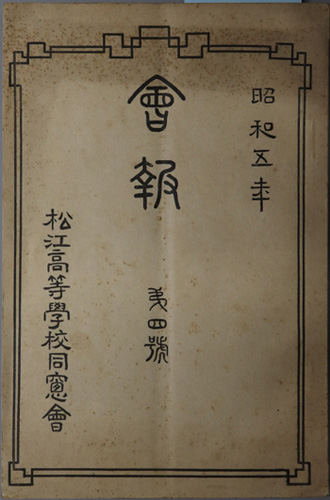 昭和五年
會報
第四號
松江高等學校同窓會